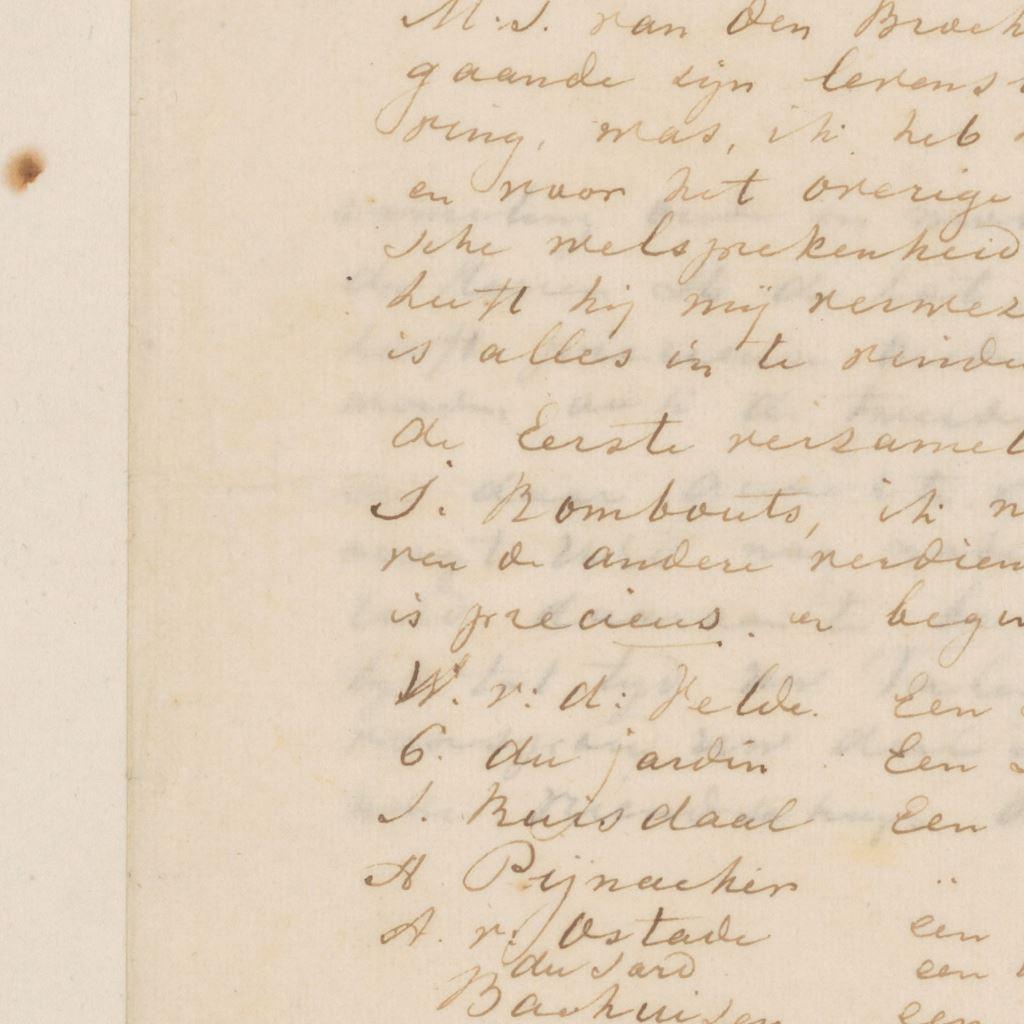 M. J. van den Broek
gaande zijn levens
ring, was, ik heb
en voor het overige
sche welsprekenheid
heeft hij mij verwez
is alles in te vinde
de Eerste verzamel
J. Rombouts, ik
ren de andere verdien
is precieus. er beg
W. v: d: Velde. Een
C. du jardin Een
J. Ruisdaal Een
A Pijnacker "
A. v: Ostade een
du Sard een
Bachuisen een